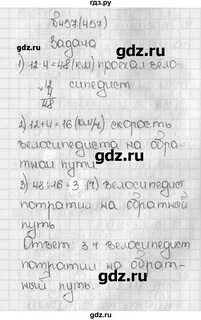 гдз.ру
№457(457)
Задача
1) 12·4=48(км) проехал вело-
×12
4
48
сипедист
2) 12+4=16 (км/ч) скорость
велосипедиста на обра-
тном пути.
3) 48:16=3 (ч) велосипедист
потратил на обратный
путь
Ответ: 3 ч велосипедист
потратил на обрат-
ный путь.
гдз.ру